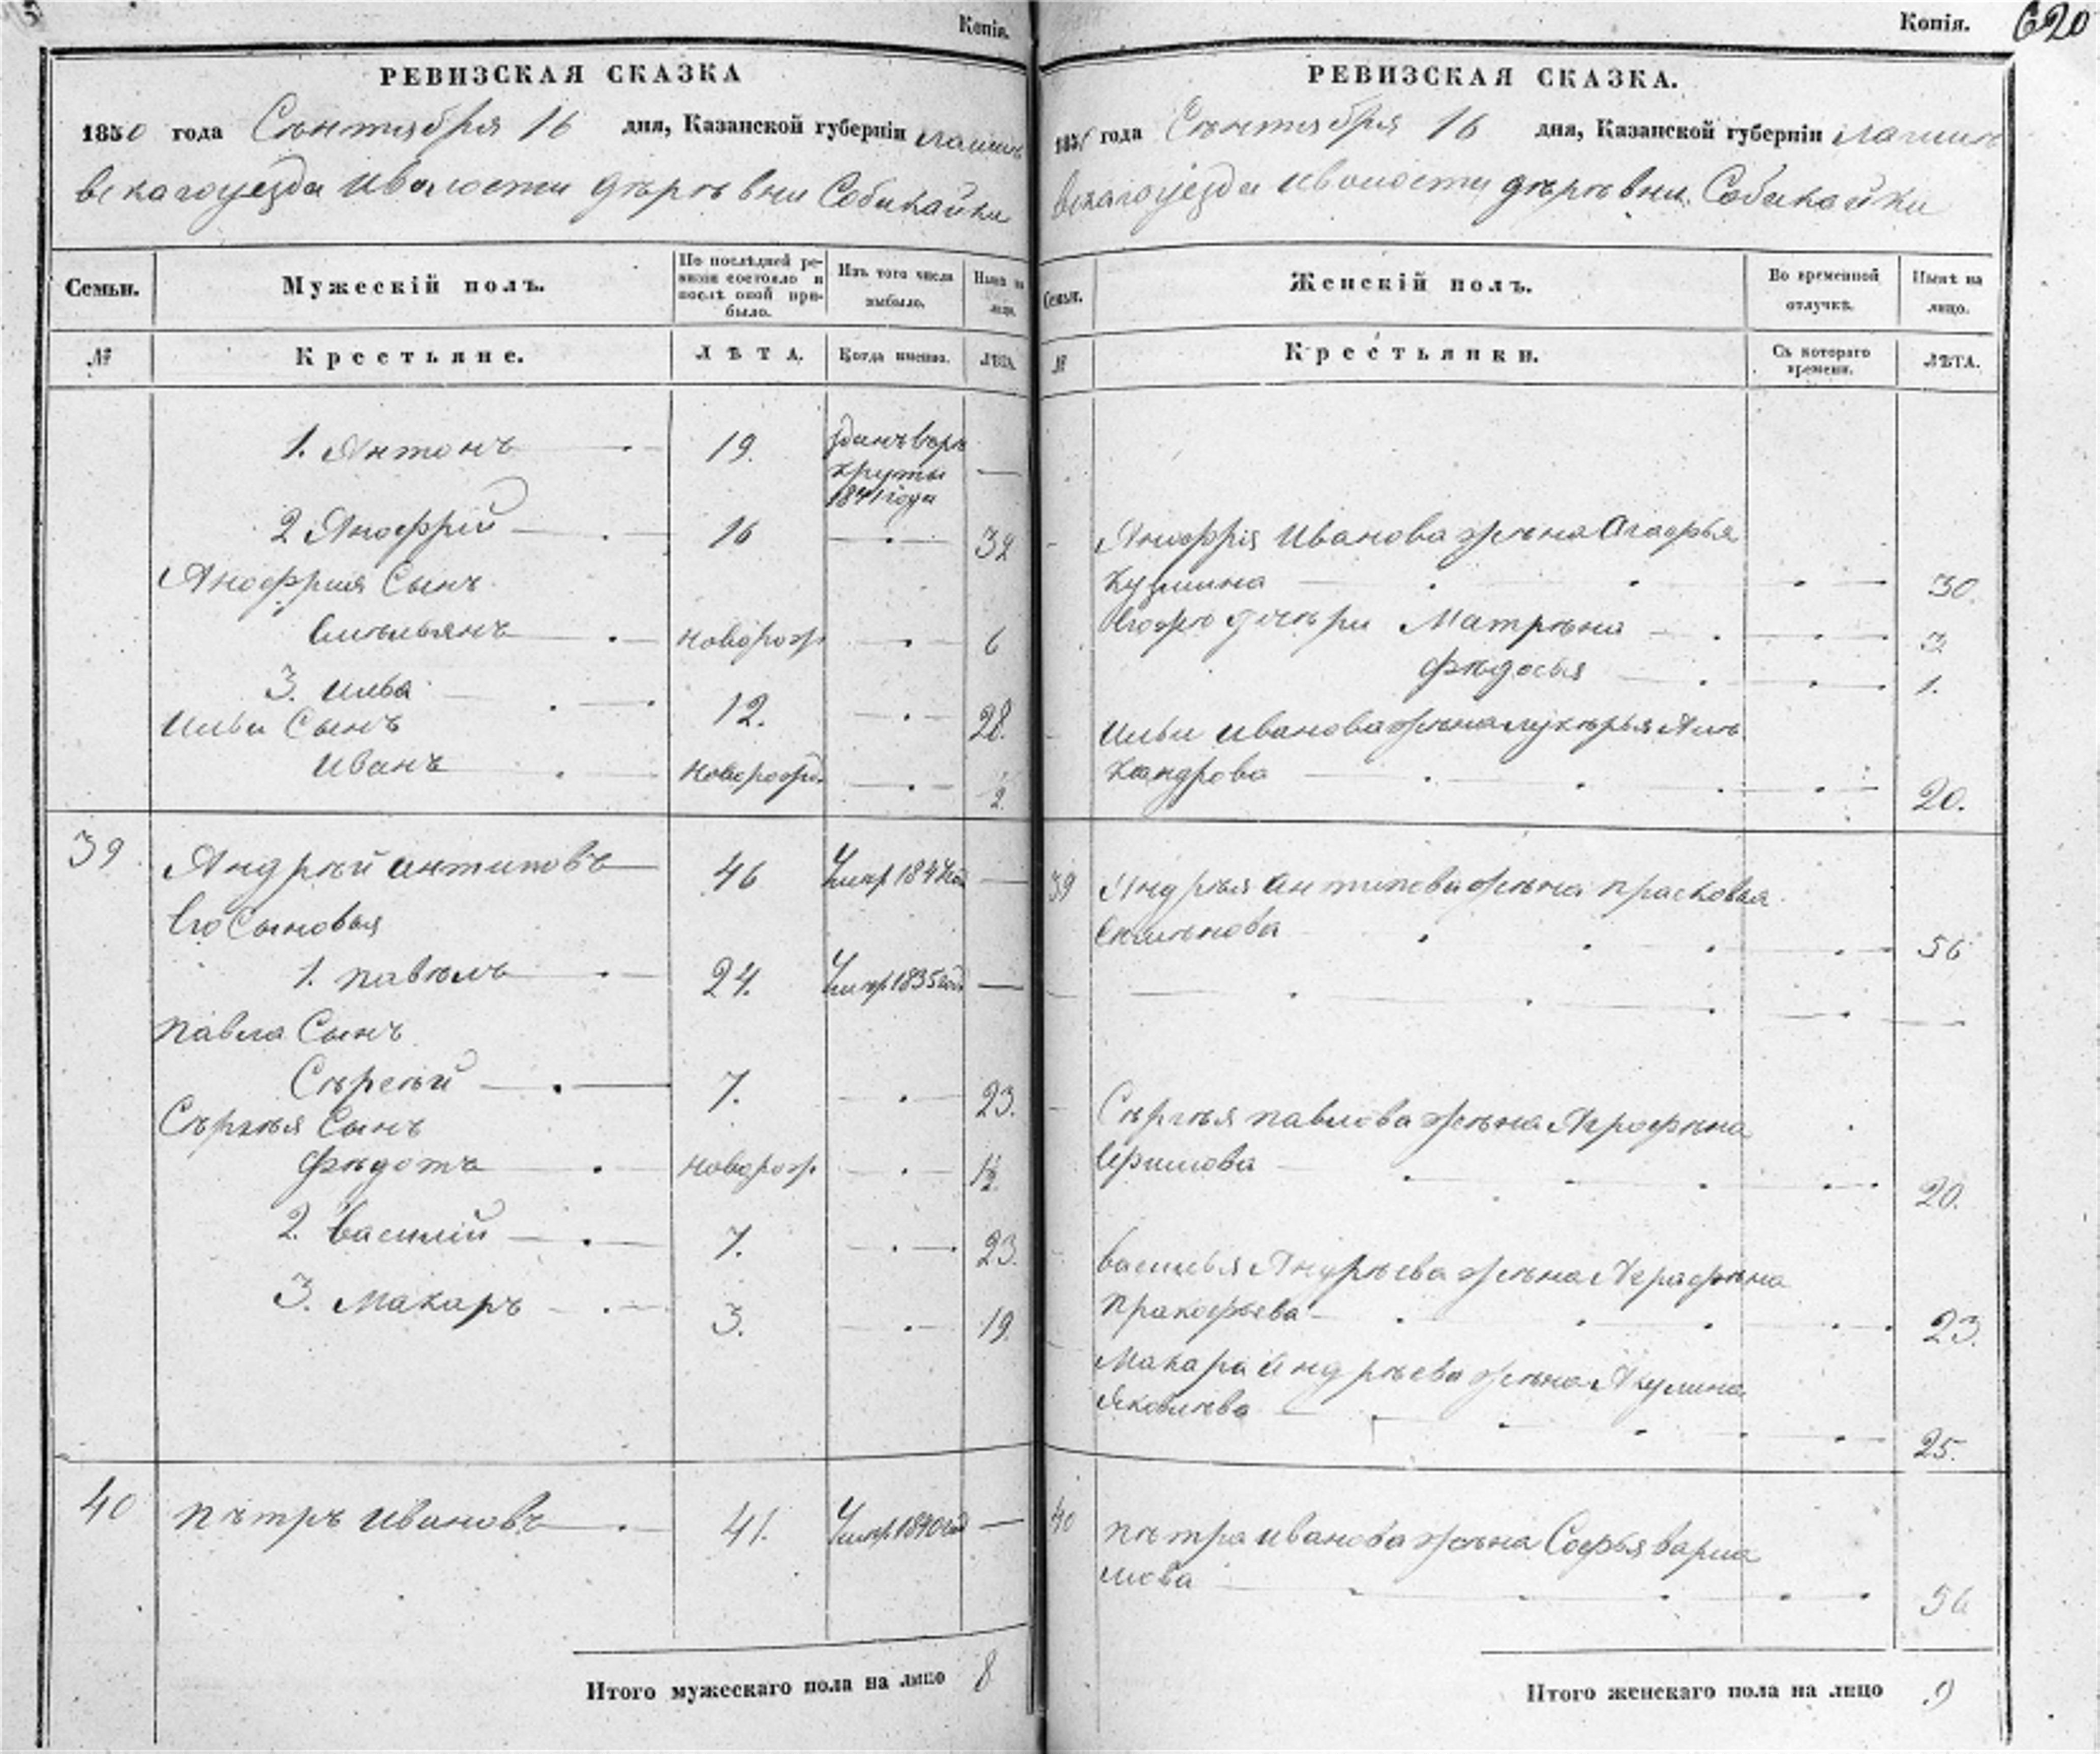 Копія.
РЕВИЗСКАЯ СКАЗКА
1850 года Сентября 16 дня, Казанской губерніи Лаише
вскаго уезда Иволости деревни Собакайки
Семьи. Мужескій полъ. По послѣдней ре-визіи состояло и послѣ оной при-было. Изъ того числа выбыло. Нынѣ на лицо.
№ Крестьяне. ЛѢТА. Когда именно. ЛѢТА.
1. Антонъ 19.
1841 года
2 Анофрій 16 32
Анофрия Сынъ
Емельянъ новорож 6
3. Илья 12. 28.
Ильи Сынъ
Иванъ новорожд. 2
39 Андрей Антиповъ 46
Его Сыновья
1. Павелъ 24. Умер 1835 год
Павла Сынъ
Сергей 7. 23.
Сергея Сынъ
Федотъ новорож 1½
2. Василій 7. 23.
3. Макаръ 3. 19.
40 Петръ Ивановъ 41. Умер 1840 год
Итого мужескаго пола на лицо 8
Копія. 620
РЕВИЗСКАЯ СКАЗКА.
года Сентября 16 дня, Казанской губерніи Лаише
вскаго уезда Иволости деревни Собакайки
Семьи. Женскій полъ. Во временной отлучкѣ. Нынѣ на лицо.
№ Крестьянки. Съ котораго времени. ЛѢТА.
Анофрія Иванова жена Агафья
Кузмина 30.
Матрена 3
Федосья 1.
Ильи Иванова жена Лукерья Але
ксандрова 20.
39 Андрея Антипова жена Прасковья
Семенова 56
Сергея Павлова жена Аграфена
Ефимова 20.
Василья Андреева жена Аграфена
Пракофьева 23.
Макара Андреева жена Акулина
Яковлева 25.
40 Петра Иванова жена Софья Варла
мова 56
Итого женскаго пола на лицо 9